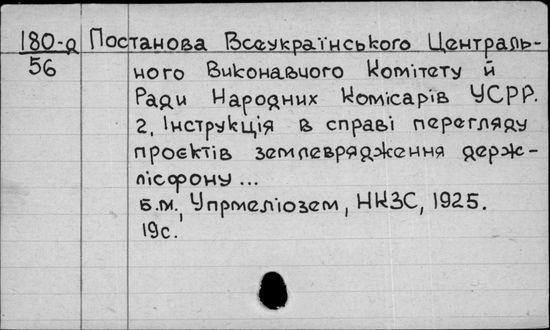 180-д Постанова Всеукраїнського Централь-
56 ного Виконавчого Комітету й
Ради Народних Комісарів УСРР.
2, Інструкція в справі перегляду
проєктів землеврядження держ-
лісфону...
б.м., Упрмеліозем, НКЗС, 1925.
19с.